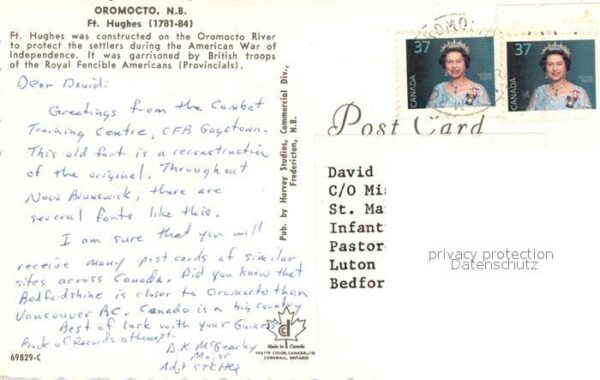 OROMOCTO, N.B.
Ft. Hughes (1781-84)
Ft. Hughes was constructed on the Oromocto River
to protect the settlers during the American War of
Independence. It was garrisoned by British troops
of the Royal Fencible Americans (Provincials).
Dear David:
Greetings from the Combat
Training Centre, CFB Gagetown.
This old fort is a reconstruction
of the original. Throughout
New Brunswick, there are
several forts like this.
I am sure that you will
receive many post cards of similar
sites across Canada. Did you know that
Bedfordshire is closer to Oromocto than
Vancouver BC. Canada is a big country
Best of luck with your Guiness
Book of Records attempt.
D.K. McGeachy
Major
Adjt CTC HQ
69829-C
Pub. by Harvey Studios, Commercial Div.,
Fredericton, N.B.
Made in Canada
CORNWALL, ONTARIO
Post Card
37
CANADA
37
CANADA
David
C/O Mi
St. Ma
Infant
Pastor
Luton
Bedfor
privacy protection
Datenschutz